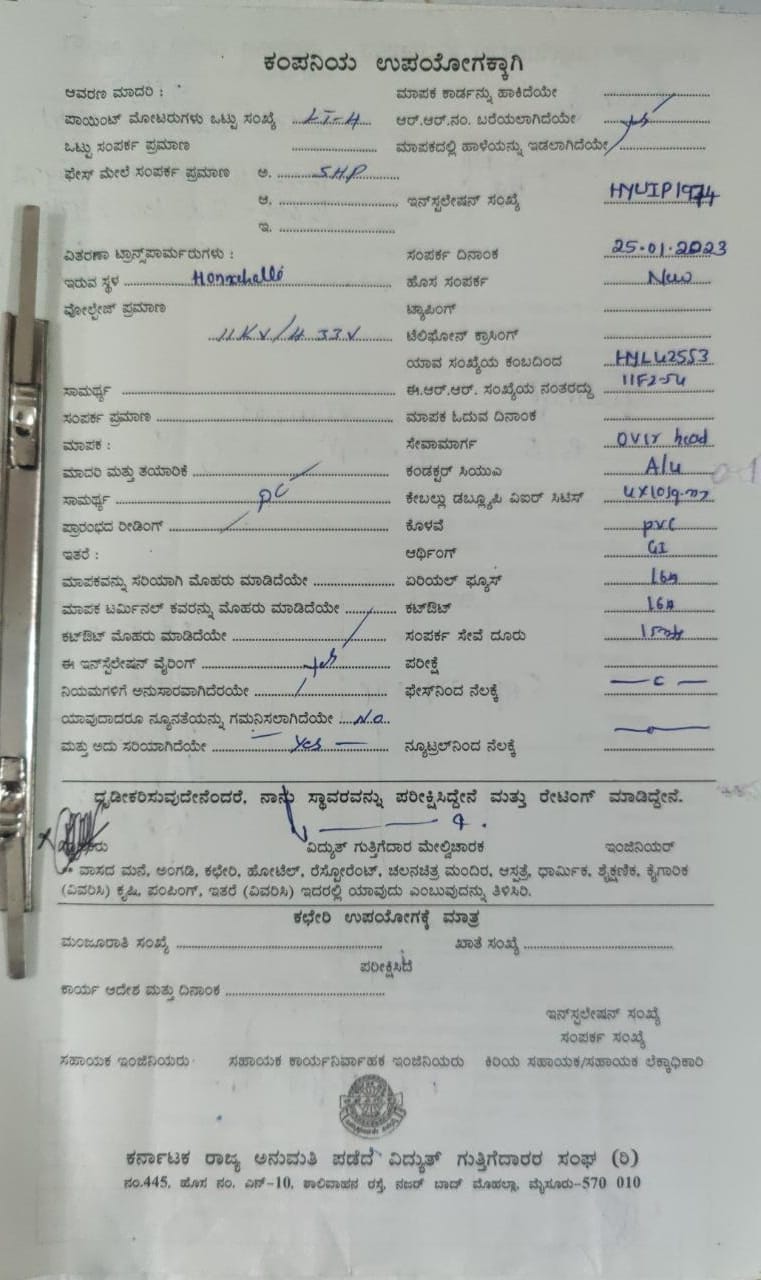 ಕಂಪನಿಯ ಉಪಯೋಗಕ್ಕಾಗಿ
ಆವರಣ ಮಾದರಿ : ಮಾಪಕ ಕಾರ್ಡನ್ನು ಹಾಕಿದೆಯೇ
ಪಾಯಿಂಟ್ ಮೋಟರುಗಳು ಒಟ್ಟು ಸಂಖ್ಯೆ LT-4 ಆರ್.ಆರ್.ನಂ. ಬರೆಯಲಾಗಿದೆಯೇ yes
ಒಟ್ಟು ಸಂಪರ್ಕ ಪ್ರಮಾಣ ಮಾಪಕದಲ್ಲಿ ಹಾಳೆಯನ್ನು ಇಡಲಾಗಿದೆಯೇ
ಫೇಸ್ ಮೇಲೆ ಸಂಪರ್ಕ ಪ್ರಮಾಣ ಅ. 5HP
ಆ. ಇನ್‌ಸ್ಟಲೇಷನ್ ಸಂಖ್ಯೆ HYUIP1974
ಇ.
ವಿತರಣಾ ಟ್ರಾನ್ಸ್‌ಪಾರ್ಮರುಗಳು : ಸಂಪರ್ಕ ದಿನಾಂಕ 25.01.2023
ಇರುವ ಸ್ಥಳ ಹೊಸ ಸಂಪರ್ಕ New
ವೋಲ್ಟೇಜ್ ಪ್ರಮಾಣ ಟ್ಯಾಪಿಂಗ್
11KV/433V ಟೆಲಿಫೋನ್ ಕ್ರಾಸಿಂಗ್
ಯಾವ ಸಂಖ್ಯೆಯ ಕಂಬದಿಂದ HYLU2553
ಸಾಮರ್ಥ್ಯ ಈ.ಆರ್.ಆರ್. ಸಂಖ್ಯೆಯ ನಂತರದ್ದು
ಸಂಪರ್ಕ ಪ್ರಮಾಣ ಮಾಪಕ ಓದುವ ದಿನಾಂಕ
ಮಾಪಕ : ಸೇವಾಮಾರ್ಗ Over head
ಮಾದರಿ ಮತ್ತು ತಯಾರಿಕೆ ಕಂಡಕ್ಟರ್ ಸಿಯುಎ
ಸಾಮರ್ಥ್ಯ DC ಕೇಬಲ್ಲು ಡಬ್ಲ್ಯೂಪಿ ವಿಐಆರ್ ಸಿಟಿಸ್ 4x10sq.mm
ಪ್ರಾರಂಭದ ರೀಡಿಂಗ್ ಕೊಳವೆ pvc
ಇತರೆ : ಆರ್ಥಿಂಗ್ GI
ಮಾಪಕವನ್ನು ಸರಿಯಾಗಿ ಮೊಹರು ಮಾಡಿದೆಯೇ ಏರಿಯಲ್ ಫ್ಯೂಸ್ 16A
ಮಾಪಕ ಟರ್ಮಿನಲ್ ಕವರನ್ನು ಮೊಹರು ಮಾಡಿದೆಯೇ ಕಟ್‌ಔಟ್ 16A
ಕಟ್‌ಔಟ್ ಮೊಹರು ಮಾಡಿದೆಯೇ ಸಂಪರ್ಕ ಸೇವೆ ದೂರು
ಈ ಇನ್‌ಸ್ಟಲೇಷನ್ ವೈರಿಂಗ್ yes ಪರೀಕ್ಷೆ
ನಿಯಮಗಳಿಗೆ ಅನುಸಾರವಾಗಿದೆರಯೇ ಫೇಸ್‌ನಿಂದ ನೆಲಕ್ಕೆ
ಯಾವುದಾದರೂ ನ್ಯೂನತೆಯನ್ನು ಗಮನಿಸಲಾಗಿದೆಯೇ N.o
ಮತ್ತು ಅದು ಸರಿಯಾಗಿದೆಯೇ Yes ನ್ಯೂಟ್ರಲ್‌ನಿಂದ ನೆಲಕ್ಕೆ
ದೃಢೀಕರಿಸುವುದೇನೆಂದರೆ, ನಾನು ಸ್ಥಾವರವನ್ನು ಪರೀಕ್ಷಿಸಿದ್ದೇನೆ ಮತ್ತು ರೇಟಿಂಗ್ ಮಾಡಿದ್ದೇನೆ.
ವಿದ್ಯುತ್ ಗುತ್ತಿಗೆದಾರ ಮೇಲ್ವಿಚಾರಕ ಇಂಜಿನಿಯರ್
** ವಾಸದ ಮನೆ, ಅಂಗಡಿ, ಕಛೇರಿ, ಹೋಟೆಲ್, ರೆಸ್ಟೋರೆಂಟ್, ಚಲನಚಿತ್ರ ಮಂದಿರ, ಆಸ್ಪತ್ರೆ, ಧಾರ್ಮಿಕ, ಶೈಕ್ಷಣಿಕ, ಕೈಗಾರಿಕ
(ವಿವರಿಸಿ) ಕೃಷಿ, ಪಂಪಿಂಗ್, ಇತರೆ (ವಿವರಿಸಿ) ಇದರಲ್ಲಿ ಯಾವುದು ಎಂಬುವುದನ್ನು ತಿಳಿಸಿರಿ.
ಕಛೇರಿ ಉಪಯೋಗಕ್ಕೆ ಮಾತ್ರ
ಮಂಜೂರಾತಿ ಸಂಖ್ಯೆ ಖಾತೆ ಸಂಖ್ಯೆ
ಪರೀಕ್ಷಿಸಿದೆ
ಕಾರ್ಯ ಆದೇಶ ಮತ್ತು ದಿನಾಂಕ
ಇನ್‌ಸ್ಟಲೇಷನ್ ಸಂಖ್ಯೆ
ಸಂಪರ್ಕ ಸಂಖ್ಯೆ
ಸಹಾಯಕ ಇಂಜಿನಿಯರು ಸಹಾಯಕ ಕಾರ್ಯನಿರ್ವಾಹಕ ಇಂಜಿನಿಯರು ಕಿರಿಯ ಸಹಾಯಕ/ಸಹಾಯಕ ಲೆಕ್ಕಾಧಿಕಾರಿ
ಕರ್ನಾಟಕ ರಾಜ್ಯ ಅನುಮತಿ ಪಡೆದ ವಿದ್ಯುತ್ ಗುತ್ತಿಗೆದಾರರ ಸಂಘ (ರಿ)
ನಂ.445, ಹೊಸ ನಂ. ಎನ್-10, ಶಾಲಿವಾಹನ ರಸ್ತೆ, ನಜರ್ ಬಾದ್ ಮೊಹಲ್ಲಾ, ಮೈಸೂರು-570 010